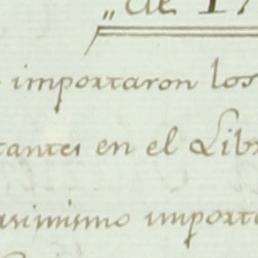 „de 17
importaron los
tantes en el Lib
asimismo import